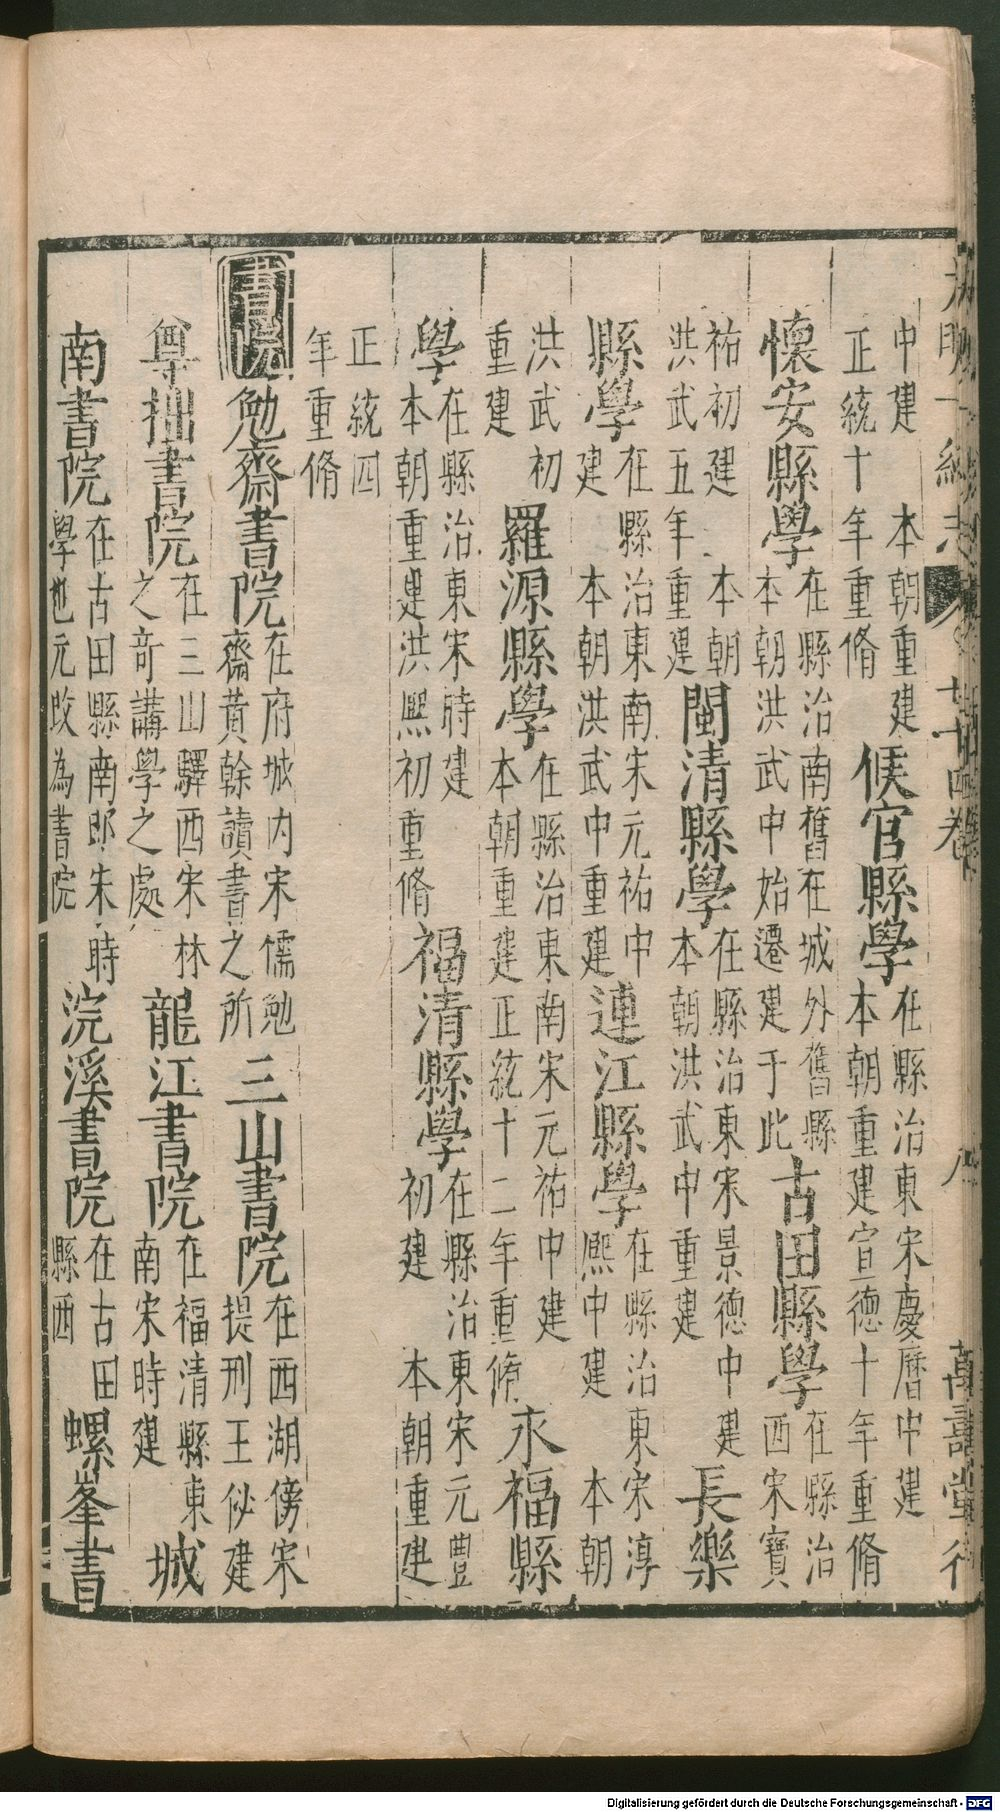 大明一統志 七十四卷 八 萬壽堂
中建 本朝重建正統十年重脩候官縣學在縣治東宋慶曆中建本朝重建宣德十年重脩
懷安縣學在縣治南舊在城外舊縣本朝洪武中始遷建于此古田縣學在縣治西宋寶
祐初建 本朝洪武五年重建閩清縣學在縣治東宋景德中建本朝洪武中重建長樂
縣學在縣治東南宋元祐中建 本朝洪武中重建連江縣學在縣治東宋淳熙中建 本朝
洪武初重建羅源縣學在縣治東南宋元祐中建本朝重建正統十二年重脩永福縣
學在縣治東宋時建本朝重建洪熙初重脩福清縣學在縣治東宋元豐初建 本朝重建
正統四年重脩
書院 勉齋書院在府城内宋儒勉齋黃榦讀書之所三山書院在西湖傍宋提刑王佖建
尊拙書院在三山驛西宋林之奇講學之處龍江書院在福清縣東南宋時建城
南書院在古田縣南郎朱時學也元改為書院浣溪書院在古田縣西螺峯書
Digitalisierung gefördert durch die Deutsche Forschungsgemeinschaft - DFG